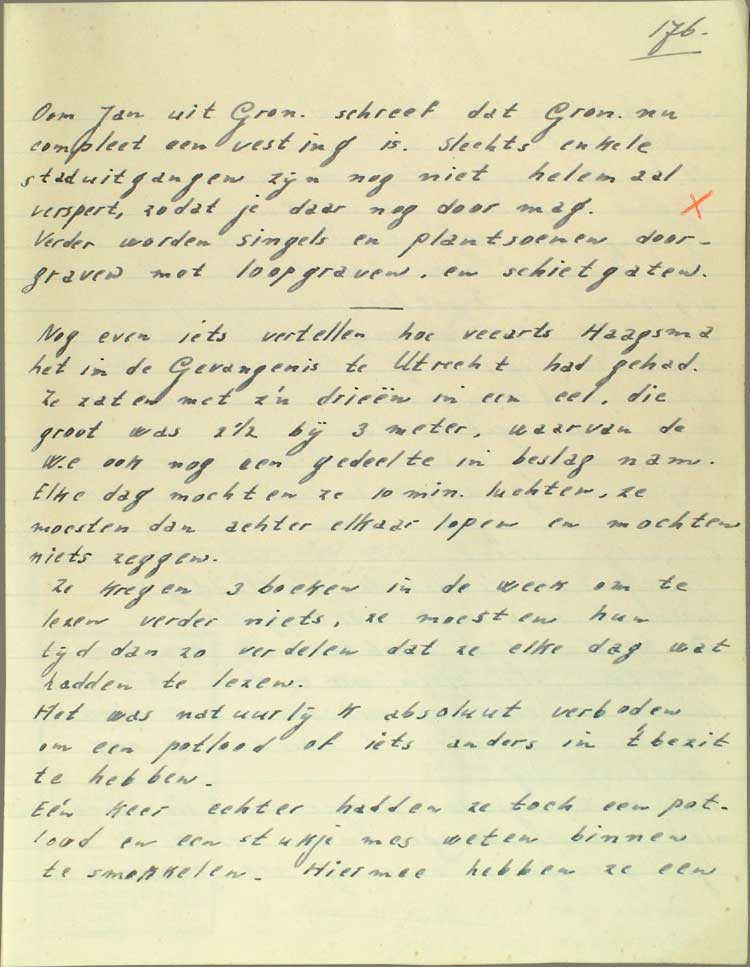 176.
Oom Jan uit Gron. schreef dat Gron. nu
compleet een vesting is. Slechts enkele
staduitgangen zijn nog niet helemaal
verspert, zodat je daar nog door mag.
Verder worden singels en plantsoenen door-
graven met loopgraven, en schietgaten.
Nog even iets vertellen hoe veearts Haagsma
het in de Gevangenis te Utrecht had gehad.
Ze zaten met z'n drieën in een cel, die
groot was 2½ bij 3 meter, waarvan de
W.C ook nog een gedeelte in beslag nam.
Elke dag mochten ze 10 min. luchten, ze
moesten dan achter elkaar lopen en mochten
niets zeggen.
Ze kregen 3 boeken in de week om te
lezen verder niets, ze moesten hun
tijd dan zo verdelen dat ze elke dag wat
hadden te lezen.
Het was natuurlijk absoluut verboden
om een potlood of iets anders in 't bezit
te hebben.
Eén keer echter hadden ze toch een pot-
lood en een stukje mes weten binnen
te smokkelen. Hiermee hebben ze een